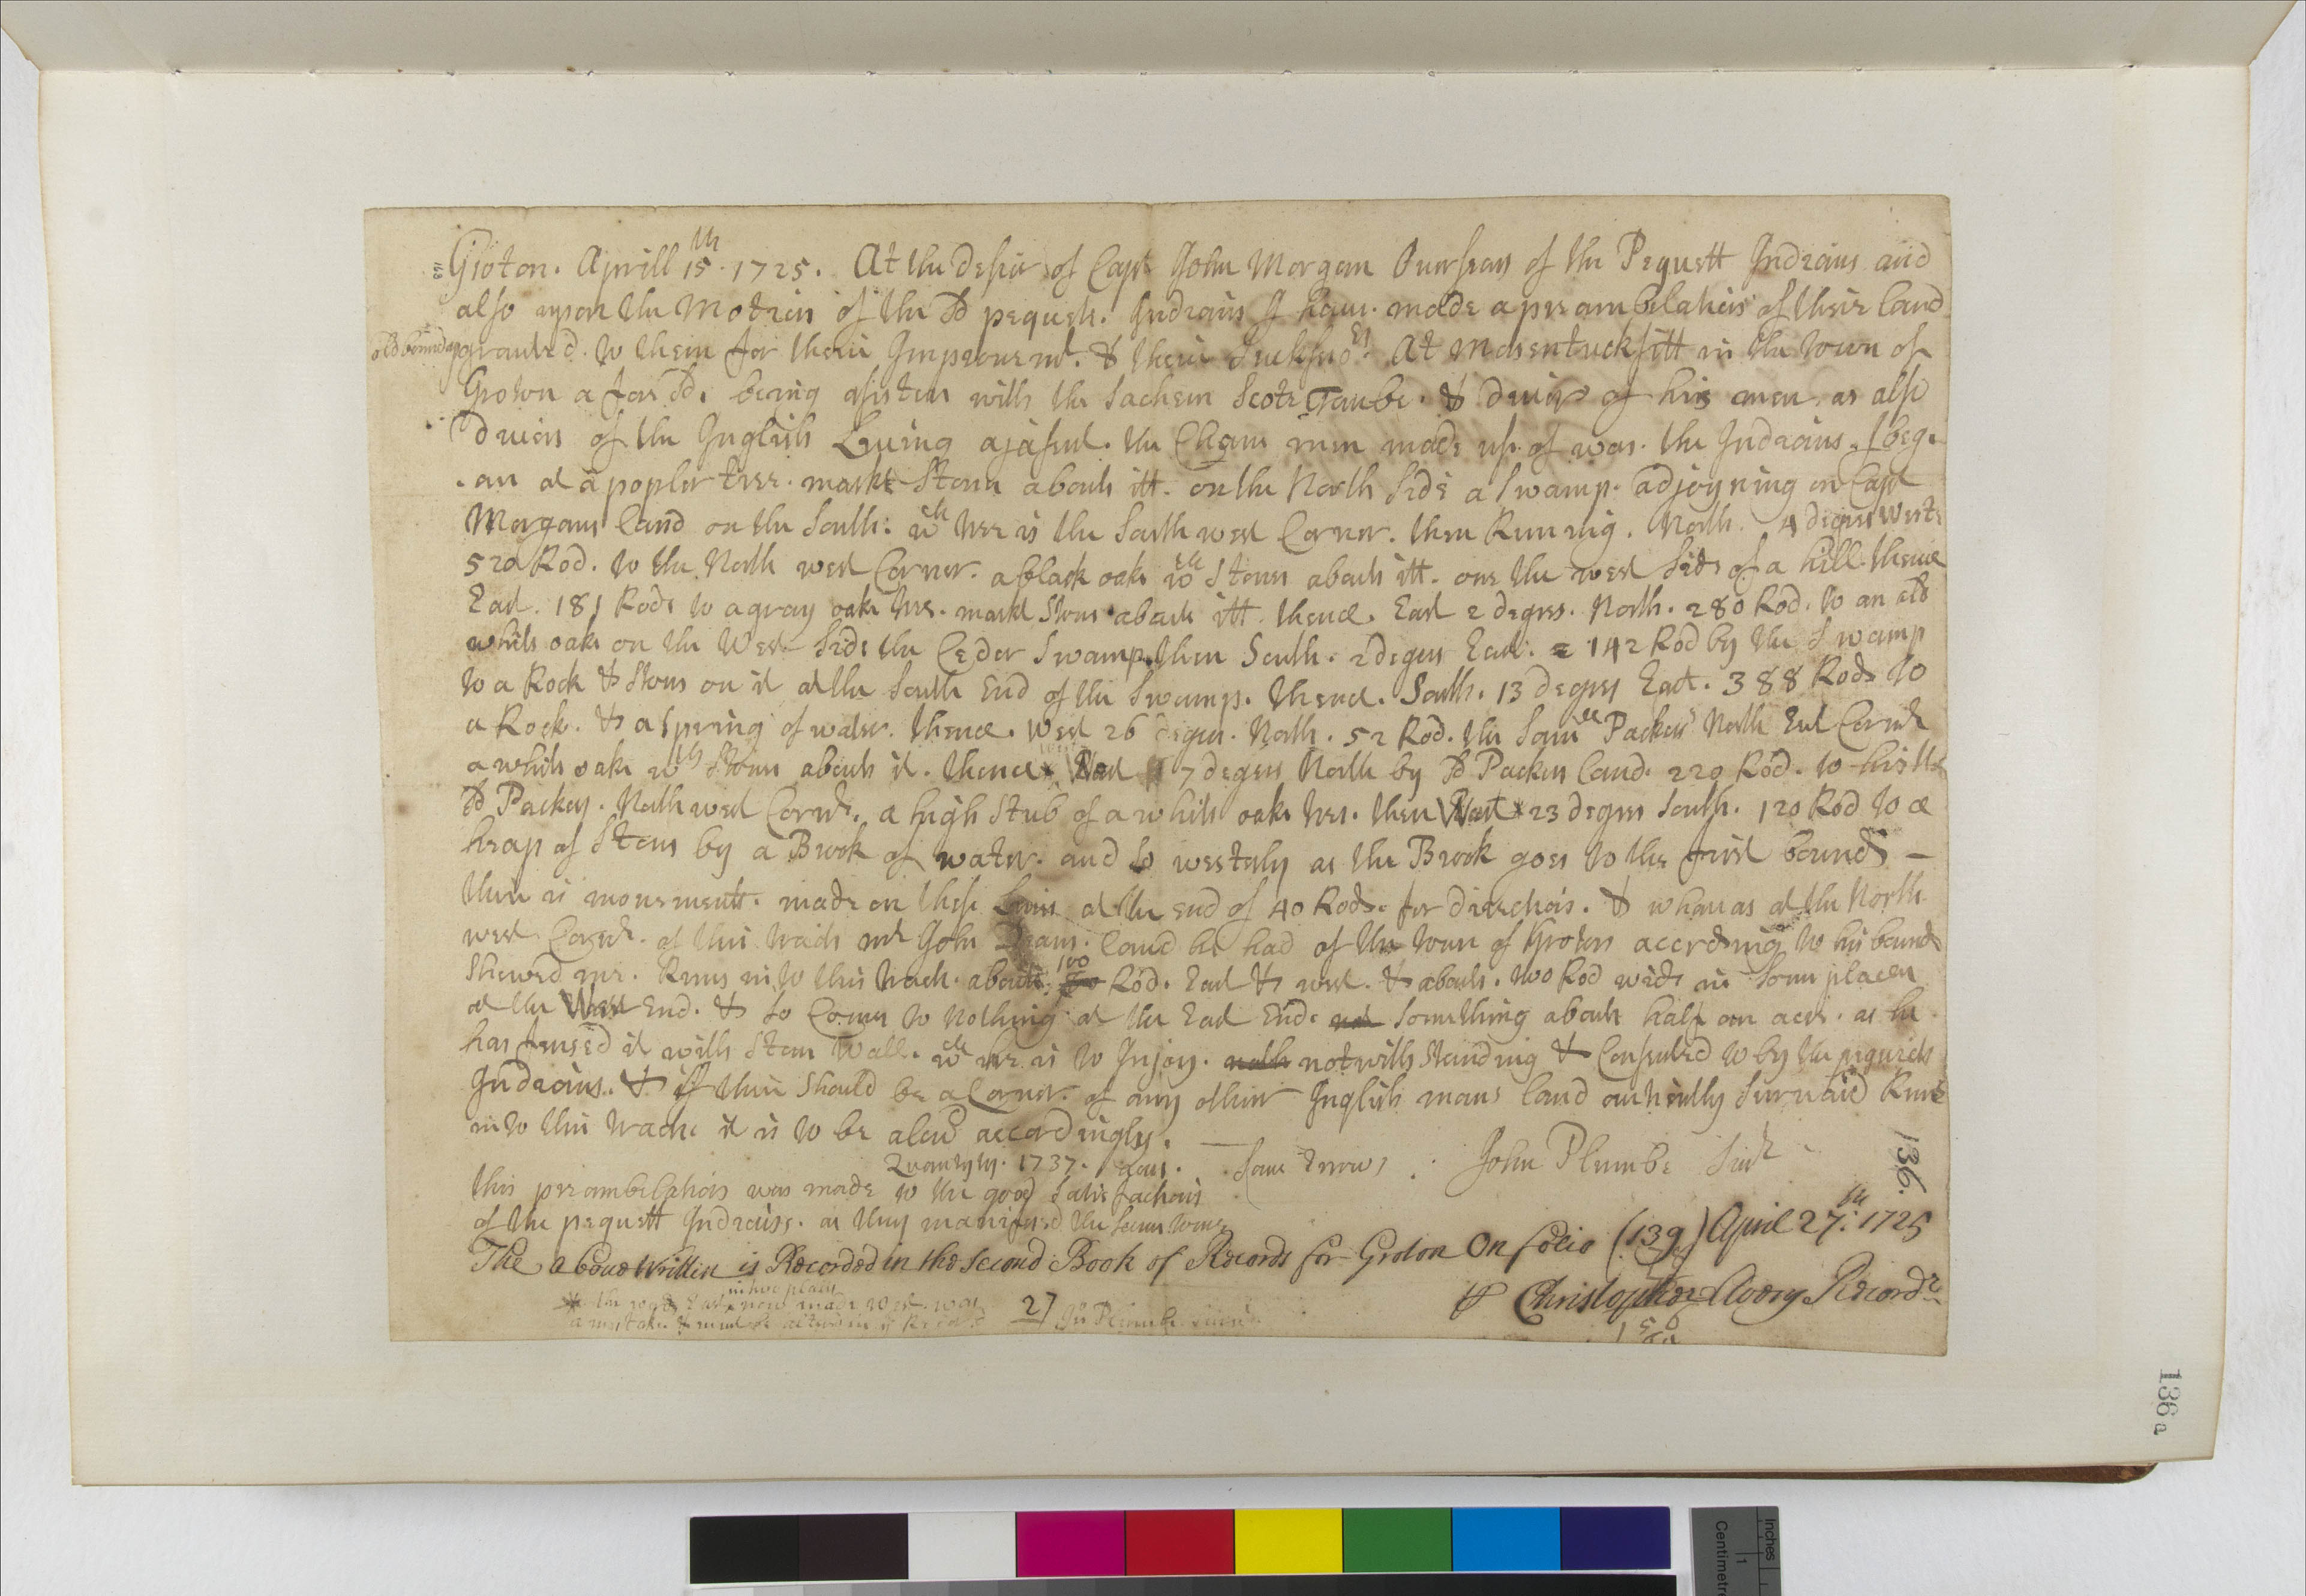 Groton. Aprill 15th. 1725. At the desir of Capt John Morgan Ouersears of the Pequett Indians and
also upon the Motion of the sd pequets. Indians I haue. made a preambelation of theire land
old bounds granted. to them for theire Improuemt. & theire Suckseso[rs] At Mosentucksitt in the town of
Groton a fore sd. being asisted with the Sachem Scote Taube. & diuers of his men as also
diuers of the Inglish Liuing ajasent. the Chane men made up of was. the Indians. I beg
an at a popler tree. markt Stons about itt. on the North side a swamp. adjoyning on Capt
Morgans land on the South: wch tree is the South west Corner. then Runing. North. 4 degres west
520 Rod. to the North west Corner. a black oake wth Stones about itt. one the west side of a hill. thence
East. 181 Rods to a gray oake tree. markt Stons about itt. thence. East 2 degres. North. 280 Rod. to an old
white oake on the West side the Ceder Swamp. then South. 2 degres East. 142 Rod by the Swamp
to a Rock & Stons on it at the South End of the Swamp. thence. South. 13 degres East. 388 Rods to
a Rock. & a Spring of water. thence. West 26 degres. North. 52 Rod. the Samll Packers North East Cornr
a white oake wth Stons about it. thence * West 17 degres North by sd Packers land. 220 Rod. to his the
sd Packers. North west Cornr. a high Stub of a white oake tree. then West * 23 degres South. 120 Rod to a
heap of Stons by a Brook of water. and so westerly as the Brook goes to the first bounds —
there is monements. made on these Lines at the end of 40 Rods. for direction. & whereas at the North
west Cornr. of this tract mr John land he had of the town of Groton according to his bounds
Shewed me. Runs in to this tract. about 100 Rod. East & west. & about. two Rod wide in some places
at the West End. & so Comes to nothing at the East End. something about half an acre. as he
has fensed it with Ston Wall. wch he is to Injoy. notwithstanding & Consented to by the pequets
Indians. & if there should be a Corner. of any other Inglish mans land antiently suruaied Runs
in to this tract. it is to be alowd accordingly. —
Quantyty. 1737. John Plumbe Sur
this preambelation was made to the good satisfaction
of the pequett Indians. as they manifesed the same time
136.
The aboue Written is Recorded in the Second Book of Records for Groton On folio (139) April 27th: 1725
Christopher Avery Recordr
in two places
* the word East now made West was
a mistake & must be altered in ye Records
27
136 a
Inches
Centimetre
1